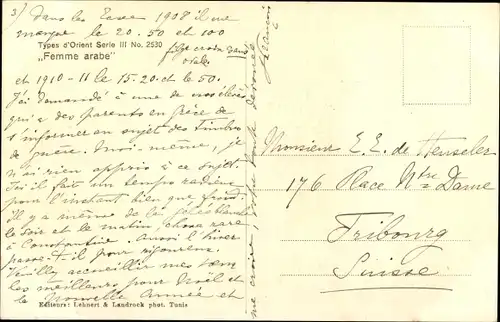 3/ Dans les Taxes 1908 il me
manque le 20. 50 et 100
Types d'Orient Serie III No. 2530
"Femme arabe"
et 1910-11 le 15. 20. et le 50.
J'ai demandé à une de nos élèves
qui a des parents en Grèce de
s'informer au sujet des timbres
de guerre. Moi-même, je
n'ai rien appris à ce sujet.
Ici il fait un temps radieux
pour l'instant bien que froid.
Il y a même de la gelée blanche
le soir et le matin, chose rare
à Constantine. Aussi l'hiver
passe-t-il pour rigoureux.
Veuillez accueillir mes vœux
les meilleurs pour Noël et
la Nouvelle Année et
Editeurs: Lehnert & Landrock phot. Tunis
me croire,
Monsieur E. E. de Heuseler
176 Place Notre=Dame
Fribourg
Suisse